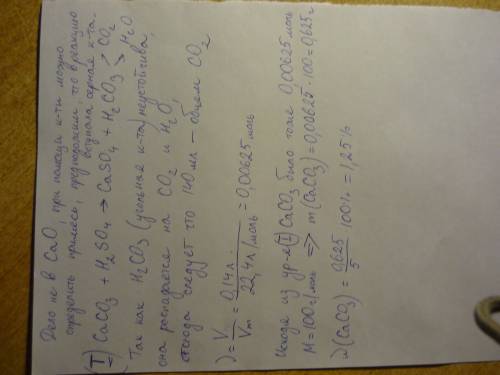 Дело не в CaO, при помощи к-ти можно
определить примеси, предположим, что в реакцию
вступила серная к-та.
(I) CaCO3 + H2SO4 → CaSO4 + H2CO3 ↗ CO2 ↘ H2O
Так как H2CO3 (угольная к-та) неустойчива,
она распадается на CO2 и H2O,
отсюда следует что 140 мл – объем CO2
ν = V/Vm = 0,14л./22,4л/моль = 0,00625 моль
Исходя из ур-я (I) CaCO3 было тоже 0,00625 моль
M = 100 г/моль ⇒ m(CaCO3) = 0,00625 · 100 = 0,625 г
ω(CaCO3) = 0,625/5 · 100% = 1,25%